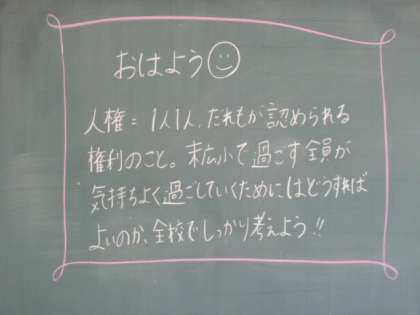 おはよう☺
人権=1人1人、だれもが認められる
権利のこと。末広小で過ごす全員が
気持ちよく過ごしていくためにはどうすれば
よいのか、全校でしっかり考えよう!!